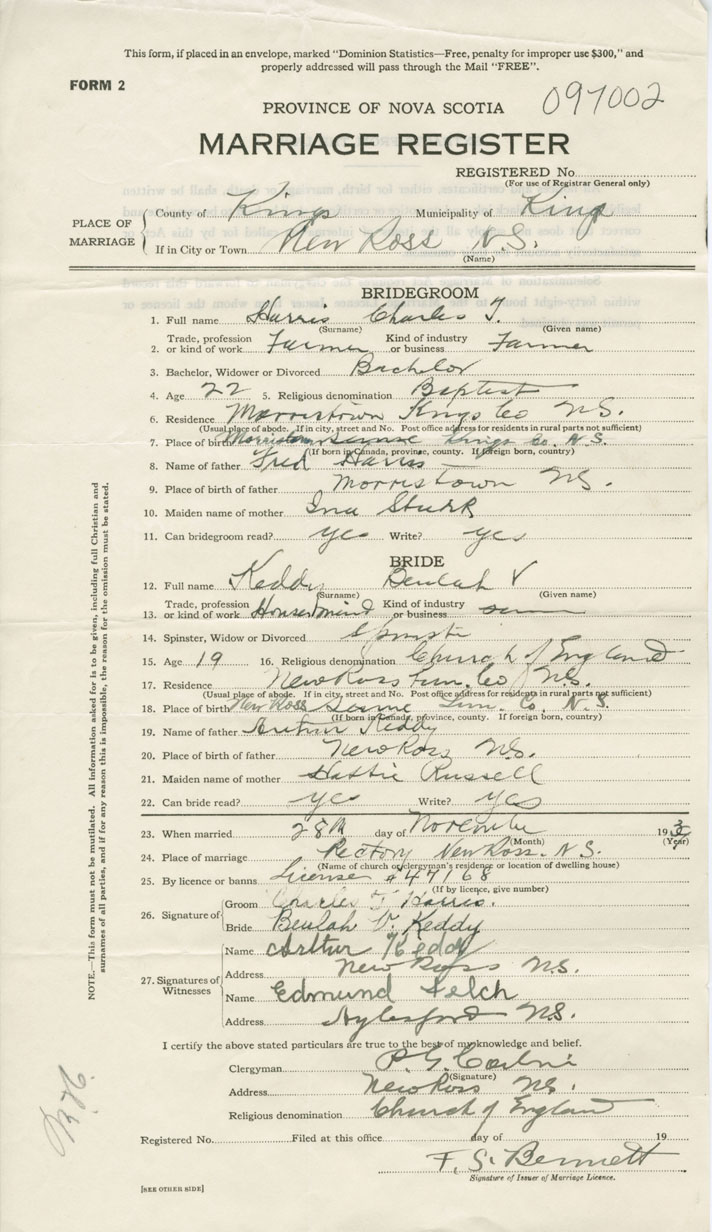 This form, if placed in an envelope, marked "Dominion Statistics—Free, penalty for improper use $300," and
properly addressed will pass through the Mail "FREE".
FORM 2
097002
PROVINCE OF NOVA SCOTIA
MARRIAGE REGISTER
REGISTERED No.
(For use of Registrar General only)
PLACE OF MARRIAGE
County of Kings Municipality of Kings
If in City or Town New Ross N.S.
(Name)
BRIDEGROOM
1. Full name Harris Charles T.
(Surname) (Given name)
2. Trade, profession or kind of work Farmer Kind of industry or business Farmer
3. Bachelor, Widower or Divorced Bachelor
4. Age 22 5. Religious denomination Baptist
6. Residence Morristown Kings Co N.S.
(Usual place of abode. If in city, street and No. Post office address for residents in rural parts not sufficient)
7. Place of birth Morristown same Kings Co. N.S.
(If born in Canada, province, county. If foreign born, country)
8. Name of father Fred Harris
9. Place of birth of father Morristown N.S.
10. Maiden name of mother Ina
11. Can bridegroom read? yes Write? yes
BRIDE
12. Full name Keddy Beulah V
(Surname) (Given name)
13. Trade, profession or kind of work Housemaid Kind of industry or business
14. Spinster, Widow or Divorced Spinster
15. Age 19 16. Religious denomination Church of England
17. Residence New Ross Lun. Co N.S.
(Usual place of abode. If in city, street and No. Post office address for residents in rural parts not sufficient)
18. Place of birth New Ross Same Lun. Co. N.S.
(If born in Canada, province, county. If foreign born, country)
19. Name of father Arthur Keddy
20. Place of birth of father New Ross N.S.
21. Maiden name of mother Hattie Russell
22. Can bride read? yes Write? yes
23. When married 28th day of November 193
(Month) (Year)
24. Place of marriage Rectory New Ross. N.S.
(Name of church or clergyman's residence or location of dwelling house)
25. By licence or banns License #47168
(If by licence, give number)
26. Signature of
Groom Charles T Harris.
Bride Beulah V. Keddy
27. Signatures of Witnesses
Name Arthur Keddy
Address New Ross N.S.
Name Edmund Felch
Address Aylesford N.S.
I certify the above stated particulars are true to the best of my knowledge and belief.
Clergyman P. G.
(Signature)
Address New Ross N.S.
Religious denomination Church of England
Registered No. Filed at this office day of 19
F. S. Bennett
Signature of Issuer of Marriage Licence.
[SEE OTHER SIDE]
NOTE.—This form must not be mutilated. All information asked for is to be given, including full Christian and
surnames of all parties, and if for any reason this is impossible, the reason for the omission must be stated.